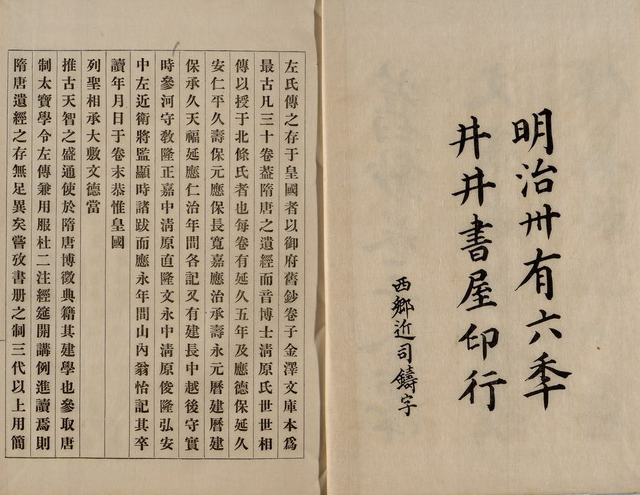 明治卅有六季
井井書屋印行
西鄉近司鑄字
左氏傳之存于皇國者以御府舊鈔卷子金澤文庫本爲
最古凡三十卷葢隋唐之遺經而音博士淸原氏世世相
傳以授于北條氏者也每卷有延久五年及應德保延久
安仁平久壽保元應保長寬嘉應治承壽永元曆建曆建
保承久天福延應仁治年間各記又有建長中越後守實
時參河守敎隆正嘉中淸原直隆文永中淸原俊隆弘安
中左近衛將監顯時諸跋而應永年間山內翁怡記其卒
讀年月日于卷末恭惟皇國
列聖相承大敷文德當
推古天智之盛通使於隋唐博徵典籍其建學也參取唐
制太寶學令左傳兼用服杜二注經筵開講例進讀焉則
隋唐遺經之存無足異矣嘗攷書册之制三代以上用簡